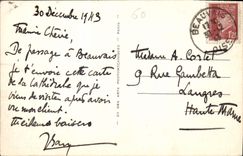 30 Décembre 1943
Mamie Chérie,
De passage à Beauvais
je t'envoie cette carte
de la Cathédrale que je
viens de visiter après avoir
vu mon client.
Meilleurs baisers
Madame A. Costet
9 Rue Gambetta
Langres
Haute Marne
BEAUVAIS
OISE